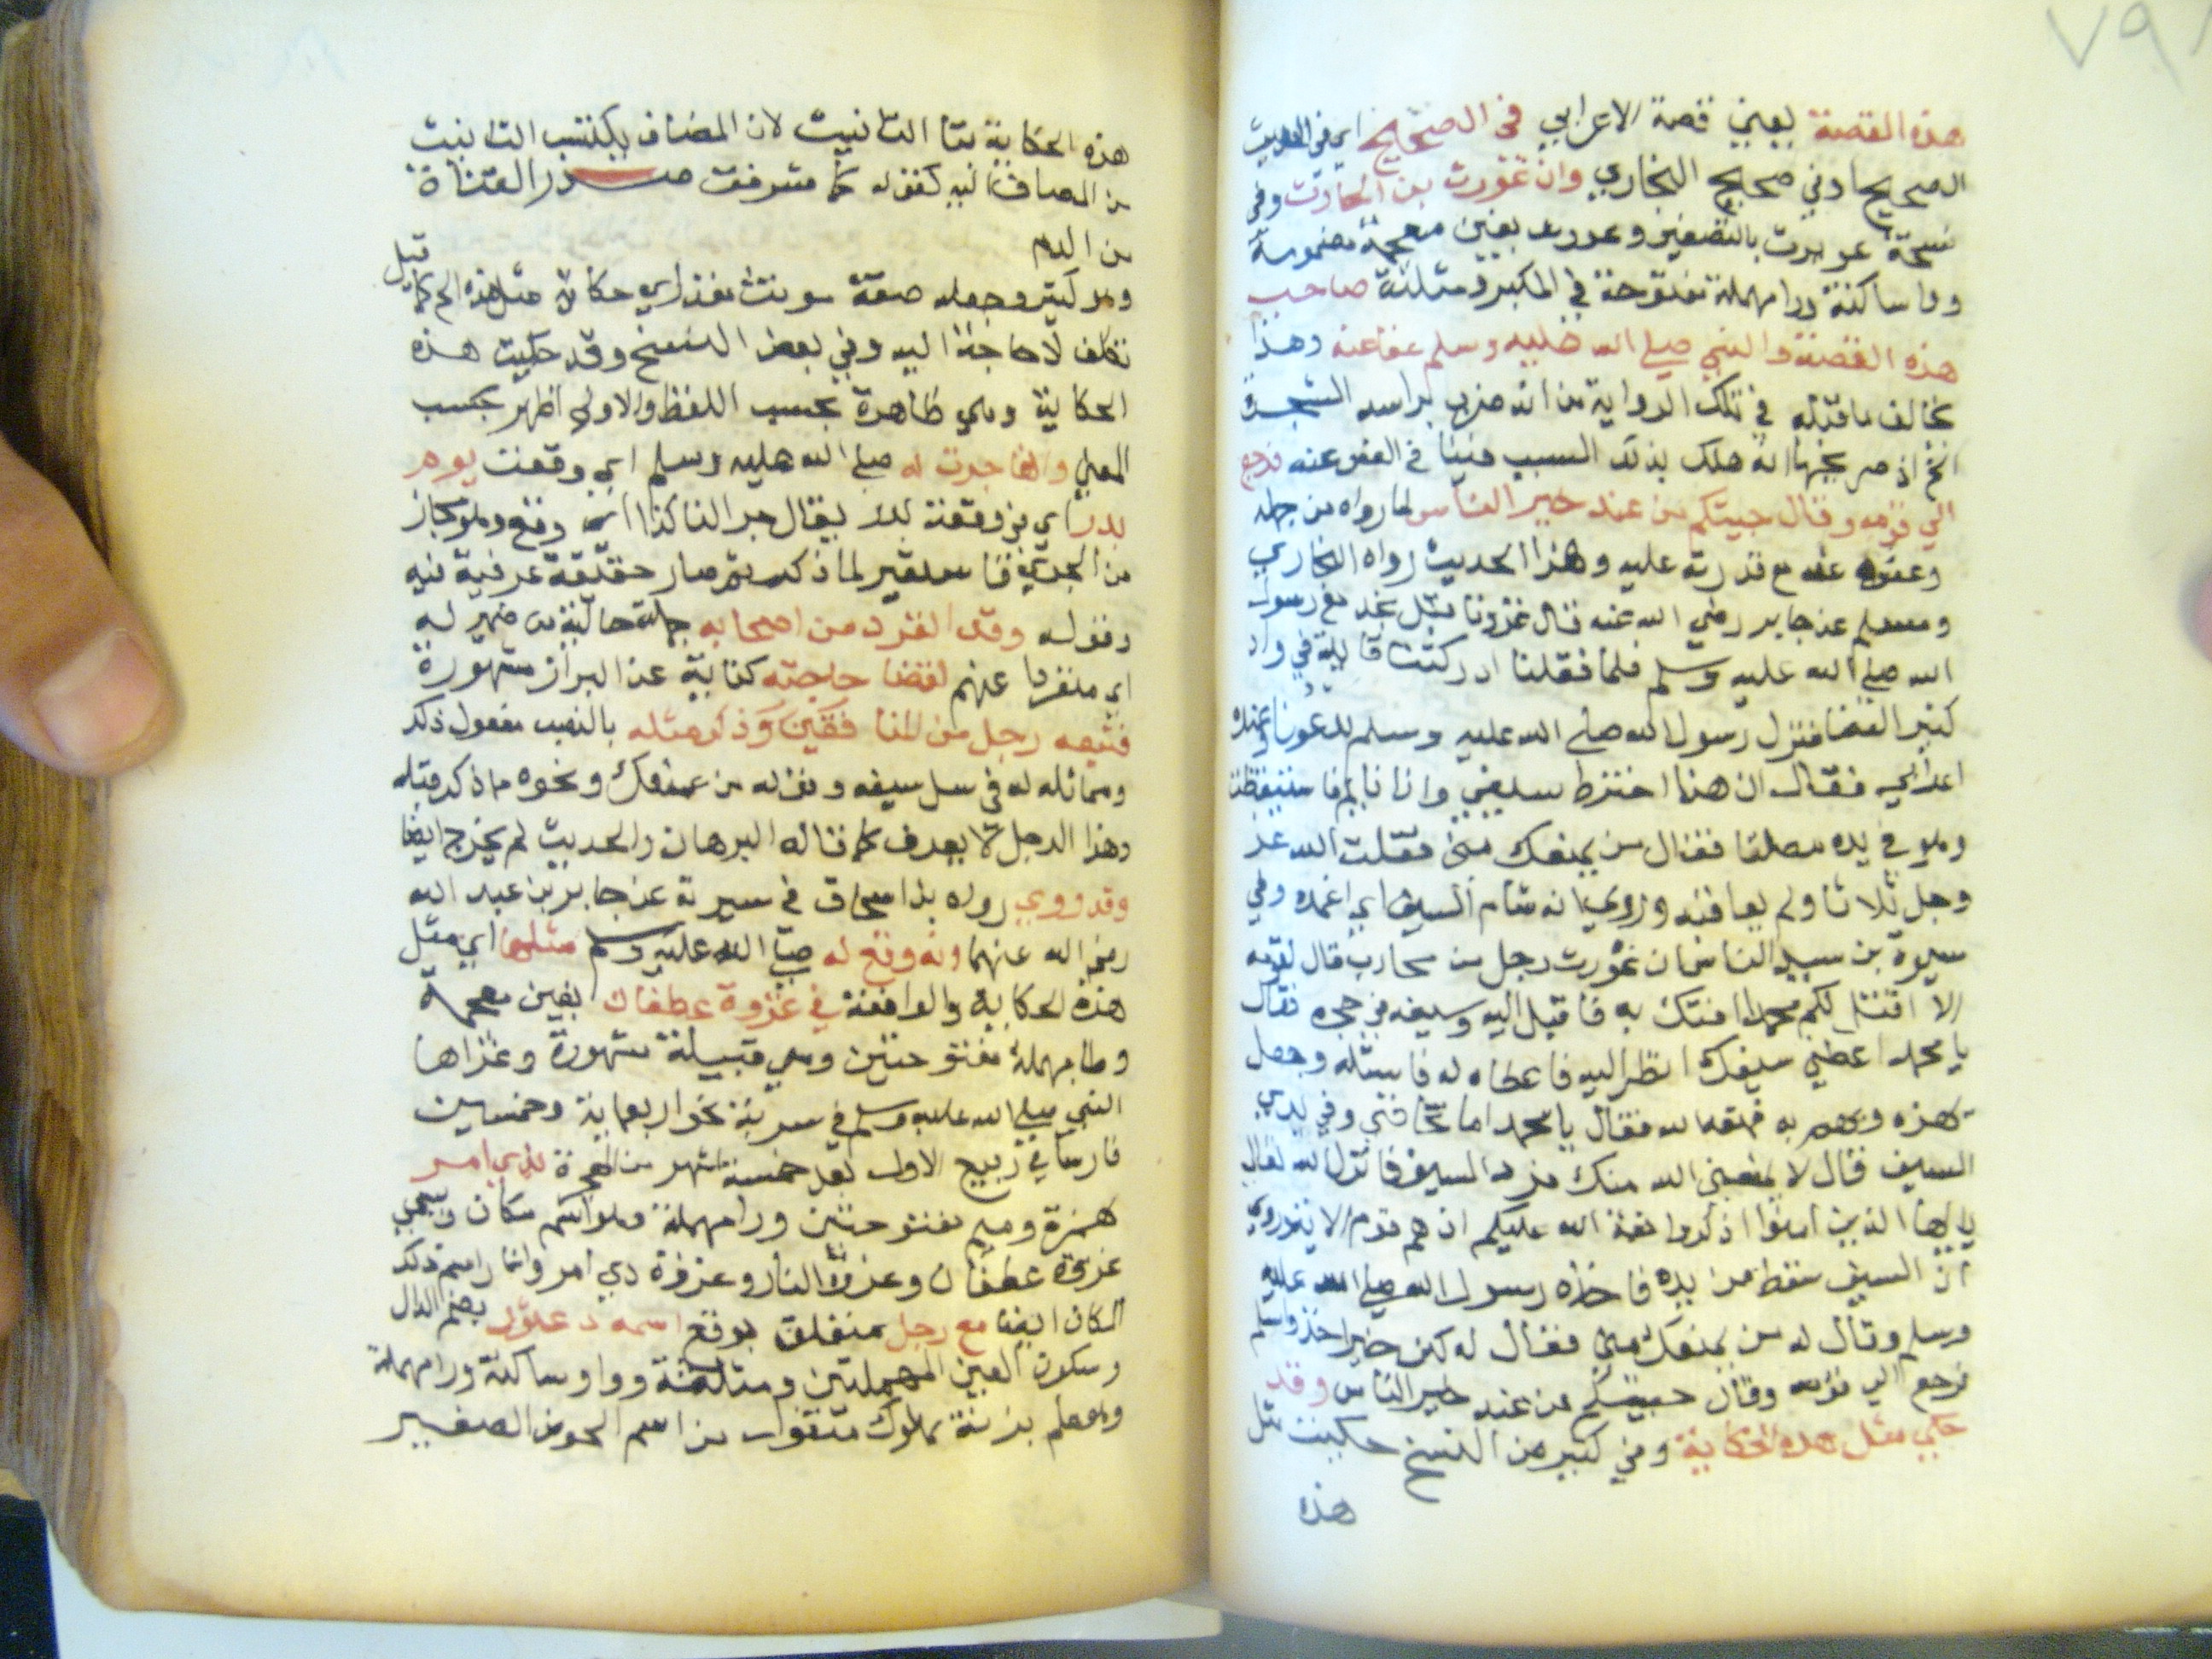 هذه القصة يعني قصة الاعرابي في الصحيح اي في الحديث
الصحيح او في صحيح البخاري وان غورث بن الحارث وفي
نسخة غويرث بالتصغير وغورث بغين معجمة مضمومة
وواساكنة ورا مهملة مفتوحة في المكبر ومثلثة صاحب
هذه القصة والنبي صلي الله عليه وسلم عفا عنه وهذا
يخالف ما قبله في تلك الرواية من انه ضرب براسه الشجرة
الخ اذ صريحها انه هلك بذلك السبب فينا في العفو عنه فرجع
الي قومه وقال جيتكم من عند خير الناس لما رواه من حلمه
وعفوه عنه مع قدرته عليه وهذا الحديث رواه البخاري
ومسلم عن جابر رضي الله عنه قال غزونا قبل نجد مع رسول
الله صلي الله عليه وسلم فلما قفلنا ادركتنا قايلة في واد
كثير العضا فنزل رسول الله صلي الله عليه وسلم يدعونا وعنده
اعرابي فقال ان هذا اخترط سيفي وانا نايم فاستيقظت
وهو في يده مصلتا فقال من يمنعك مني فقلت الله عز
وجل ثلاثا ولم يعاقبه وروي انه شام السيف اي اغمده وفي
سيرة بن سيد الناس ان غورث رجل من محارب قال لقومه
الا اقتل لكم محمدا افتك به فاقبل اليه وسيفه في حجره فقال
يا محمد اعطني سيفك انظر اليه فاعطاه له فاستله وجعل
يهزه ويهم به فقال يا محمد اما تخافني وفي يدي
السيف قال لا يمنعني الله منك فرد السيف فانزل الله تعالي
يا ايها الذين امنوا اذكروا نعمة الله عليكم اذ هم قوم الاية وروي
ان السيف سقط من يده فاخذه رسول الله صلي الله عليه
وسلم وقال له من يمنعك مني فقال له كن خير اخذ واسلم
فرجع الي قومه وقال جيتكم من عند خير الناس وقد
حكي مثل هذه الحكاية وفي كثير من النسخ حكيت مثل
هذه
هذه الحكاية بتا التانيث لان المضاف يكتسب التانيث
من المضاف اليه كقوله كما شرقت صدر القناة
من الدم
وهو كثير وجعله صفة مونث مقدر اي حكاية مثل هذه الخ كما قيل
تكلف لا حاجة اليه وفي بعض النسخ وقد حكيت هذه
الحكاية وهي ظاهرة بحسب اللفظ والاولي اظهر بحسب
المعني وانها جرت له صلي الله عليه وسلم اي وقعت يوم
بدر اي في وقعته يقال جرا لنا كذا اي وقع وهو مجاز
من الجري فاستعير لما ذكر ثم صار حقيقة عرفية فيه
وقوله وقد انفرد من اصحابه جملة حالية من ضمير له
اي منفردا عنهم لقضا حاجته كناية عن البراز مشهورة
فتبعه رجل من المنافقين وذكر مثله بالنصب مفعول ذكر
ومماثله له في سل سيفه وقوله من يمنعك ونحوه ما ذكر قبله
وهذا الرجل لا يعرف كما قاله البرهان والحديث لم يخرج ايضا
وقد روي رواه بن اسحاق في سيرته عن جابر بن عبد الله
رضي الله عنهما وانه وقع له صلي الله عليه وسلم مثلها اي مثل
هذه الحكاية والواقعة في غزوة غطفان بغين معجمة
وطا مهملة مفتوحتين وهي قبيلة مشهورة وغزاها
النبي صلي الله عليه وسلم في سرية نحو اربعماية وخمسين
فارسا في ربيع الاول بعد خمسة شهر من الهجرة بذي امر
همزة وميم مفتوحتين ورا مهملة وهو اسم مكان وتسمي
غزوة غطفان وغزوة انمار وغزوة ذي امر وانمار اسم ذلك
المكان ايضا مع رجل متعلق بوقع اسمه دعثور بضم الدال
وسكون العين المهملتين ومثلثة وواو ساكنة ورا مهملة
وهو علم بزنة بهلول منقول من اسم الحوض الصغير